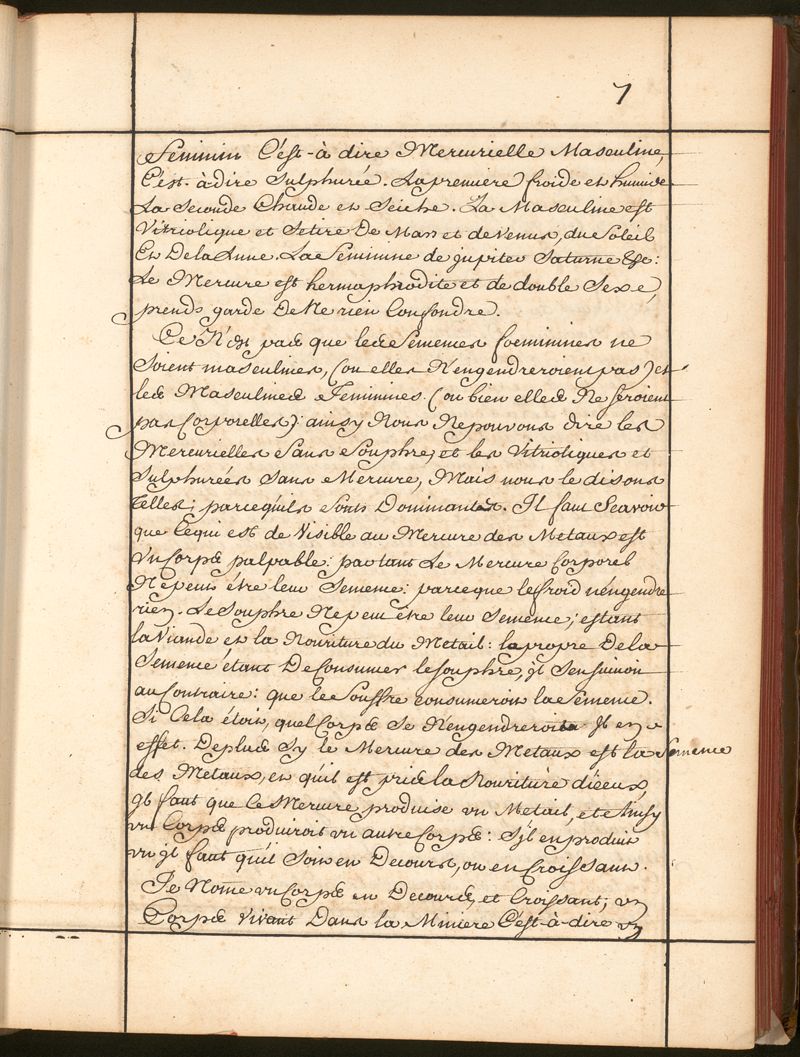 7
Feminin C'est-à dire Mercurielle Masculine,
C'est-à dire Sulphurée. La premiere froide et humide
La Seconde Chaude et Seiche. La Masculine est
Vitriolique et Se tire De Mars et de Venus, du Soleil
Et De la Lune. La Feminine de jupiter Saturne &c:
Le Mercure est hermaphrodite et de double Sexe,
prends garde De Ne rien Confondre.
Ce N'est pas que les Semences foeminines ne
Soient masculines, (ou elles N'engendreroient pas) et
les Masculines Feminines (ou bien elles Ne Seroient
pas Corporelles): ainsy Nous Ne pouvons dire les
Mercurielles Sans Souphre, et les Vitrioliques et
Sulphurées Sans Mercure, Mais nous le disons
telles; parcequ'ils Sont Dominantes. Il faut Scavoir
que Ce qui est de Visible au Mercure des Metaux est
Un Corps palpable: partant Le Mercure Corporel
Ne peut être leur Semence: parceque le froid n'engendre
rien. Le Souphre Ne peut être leur Semence; estant
la Viande et la Nouriture du Metail: le propre De la
Semence étant De Consumer le souphre, jl S'ensuivroit
au Contraire: que le Souffre consumeroit la Semence.
Si Cela étoit, quel Corps Se N'engendreroit jl en
effet. De plus Sy le Mercure des Metaux est la Semence
des Metaux, et qu'il est pris la Nouriture d'jceux,
jl faut que Ce Mercure produise un Metail, et Ainsy
un Corps produiroit un autre Corps: S'jl en produit
un jl faut qu'il Soit en Decours, ou en Croissant.
Je Nome un Corps en Decours, et Croissant; un
Corps Vivant Dans la Miniere C'est-à-dire un